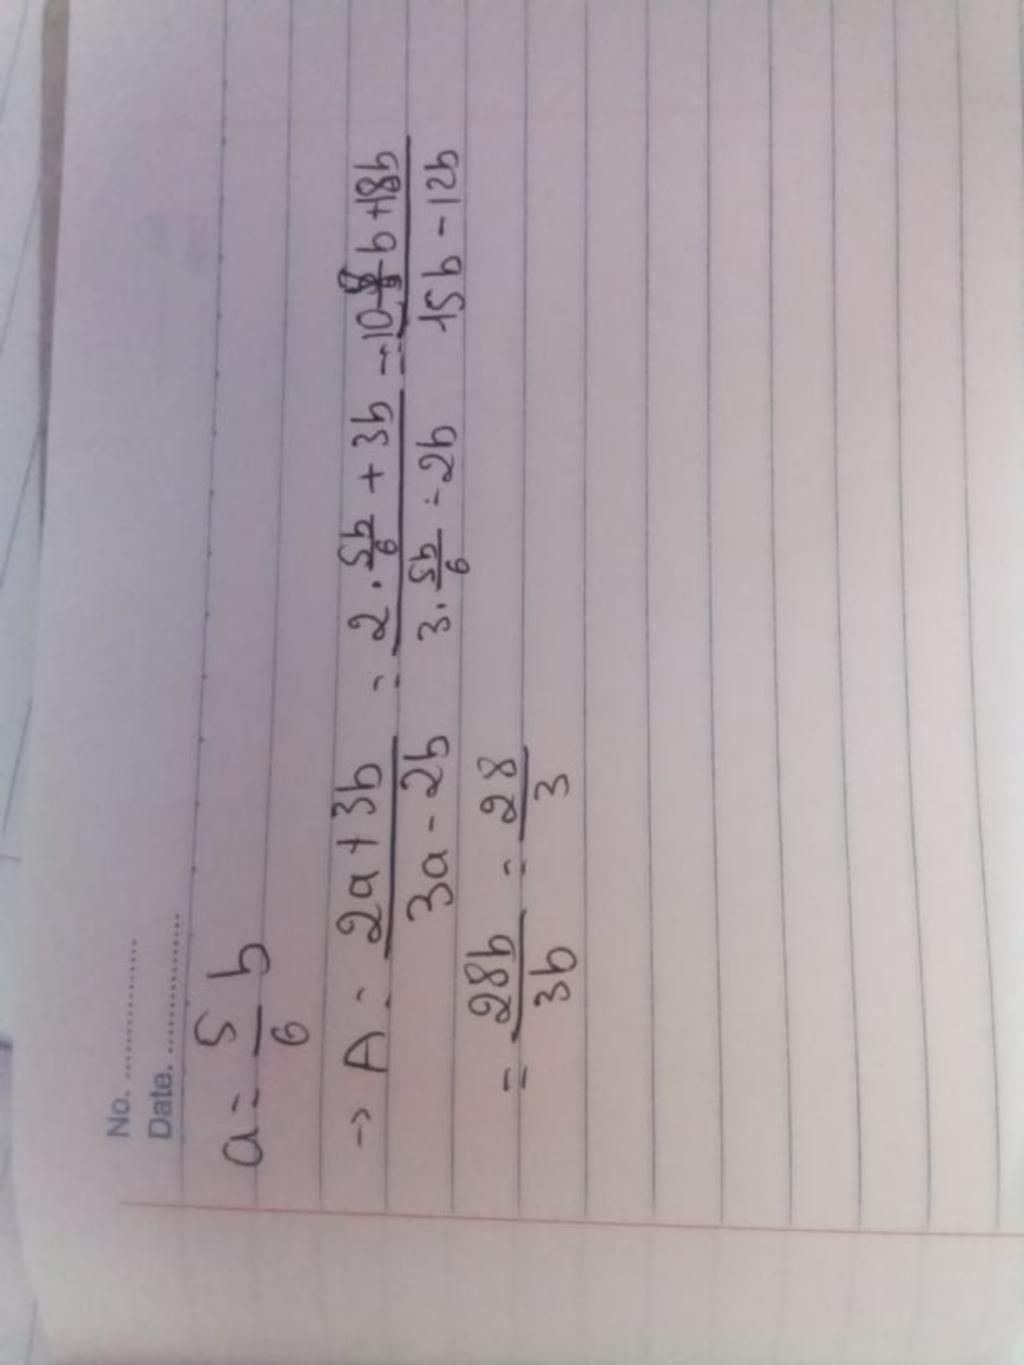 No. ..................
Date. ..................
a = 5/6 b
-> A = (2a + 3b)/(3a - 2b) = (2 . 5b/6 + 3b)/(3 . 5b/6 - 2b) = (10 b + 18b)/(15b - 12b)
= 28b/3b = 28/3